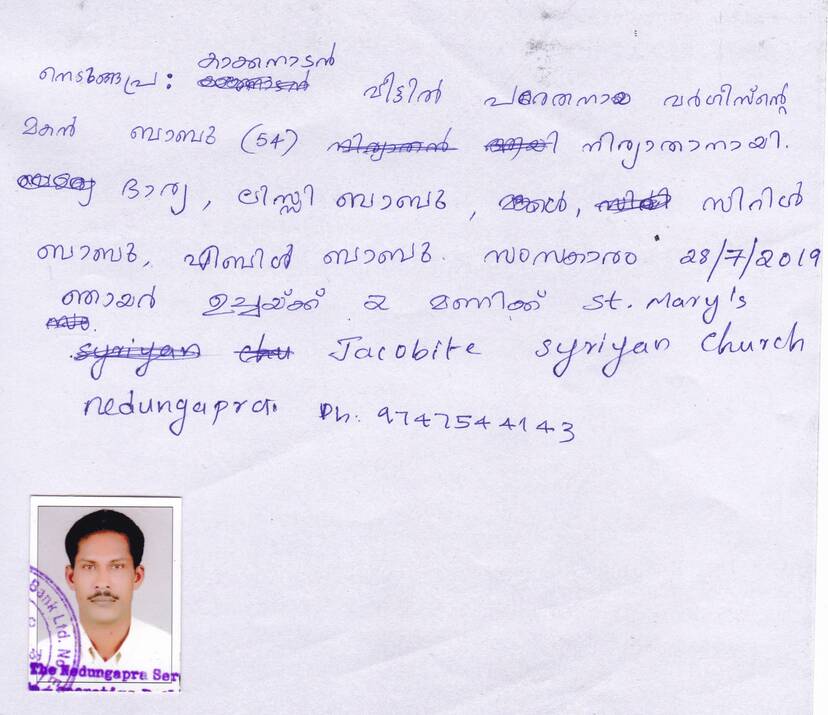 കാക്കനാടൻ
നെടുങ്ങപ്ര: വീട്ടിൽ പരേതനായ വർഗീസ്ൻ്റെ
മകൻ ബാബു (54) നിര്യാതാനായി.
ഭാര്യ, ലിസ്സി ബാബു, മക്കൾ, സിറിൾ
ബാബു, എബിൾ ബാബു. സംസകാരം 28/7/2019
ഞായർ ഉച്ചയ്ക്ക് 2 മണിക്ക് St. Mary's
Jacobite Syriyan Church
nedungapra. Ph: 9747544143
Bank Ltd. No
The Nedungapra Ser